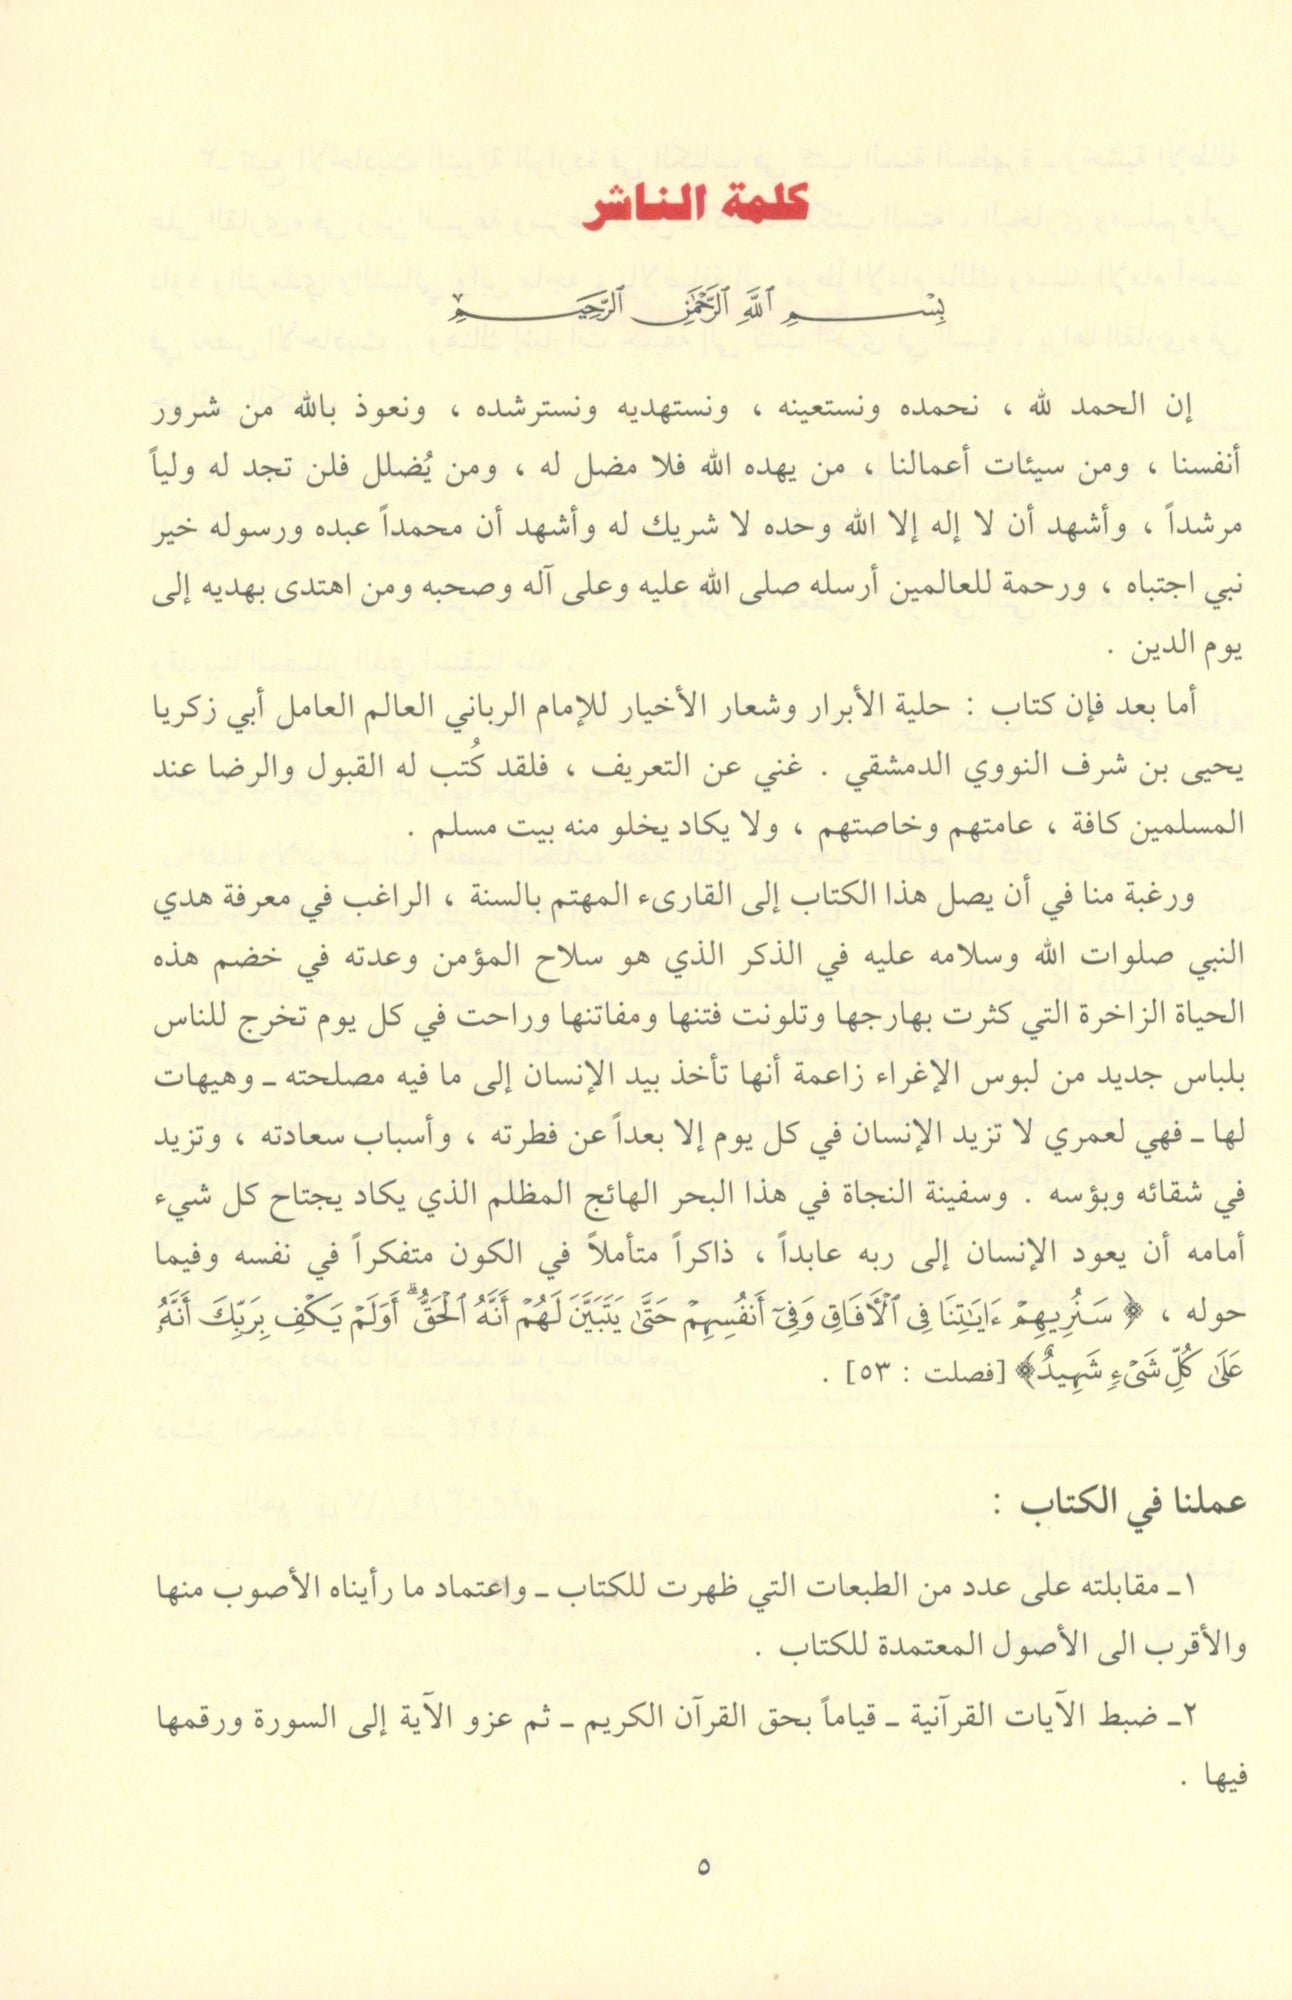 كلمة الناشر
بِسْمِ ٱللَّهِ ٱلرَّحْمَٰنِ ٱلرَّحِيمِ
إن الحمد لله ، نحمده ونستعينه ، ونستهديه ونسترشده ، ونعوذ بالله من شرور
أنفسنا ، ومن سيئات أعمالنا ، من يهده الله فلا مضل له ، ومن يُضلل فلن تجد له ولياً
مرشداً ، وأشهد أن لا إله إلا الله وحده لا شريك له وأشهد أن محمداً عبده ورسوله خير
نبي اجتباه ، ورحمة للعالمين أرسله صلى الله عليه وعلى آله وصحبه ومن اهتدى بهديه إلى
يوم الدين .
أما بعد فإن كتاب : حلية الأبرار وشعار الأخيار للإمام الرباني العالم العامل أبي زكريا
يحيى بن شرف النووي الدمشقي . غني عن التعريف ، فلقد كُتب له القبول والرضا عند
المسلمين كافة ، عامتهم وخاصتهم ، ولا يكاد يخلو منه بيت مسلم .
ورغبة منا في أن يصل هذا الكتاب إلى القارىء المهتم بالسنة ، الراغب في معرفة هدي
النبي صلوات الله وسلامه عليه في الذكر الذي هو سلاح المؤمن وعدته في خضم هذه
الحياة الزاخرة التي كثرت بهارجها وتلونت فتنها ومفاتنها وراحت في كل يوم تخرج للناس
بلباس جديد من لبوس الإغراء زاعمة أنها تأخذ بيد الإنسان إلى ما فيه مصلحته ـ وهيهات
لها ـ فهي لعمري لا تزيد الإنسان في كل يوم إلا بعداً عن فطرته ، وأسباب سعادته ، وتزيد
في شقائه وبؤسه . وسفينة النجاة في هذا البحر الهائج المظلم الذي يكاد يجتاح كل شيء
أمامه أن يعود الإنسان إلى ربه عابداً ، ذاكراً متأملاً في الكون متفكراً في نفسه وفيما
حوله ، ﴿ سَنُرِيهِمْ ءَايَٰتِنَا فِى ٱلْأَفَاقِ وَفِىٓ أَنفُسِهِمْ حَتَّىٰ يَتَبَيَّنَ لَهُمْ أَنَّهُ ٱلْحَقُّ ۗ أَوَلَمْ يَكْفِ بِرَبِّكَ أَنَّهُۥ
عَلَىٰ كُلِّ شَىْءٍ شَهِيدٌ﴾ [فصلت : ٥٣] .
عملنا في الكتاب :
١ـ مقابلته على عدد من الطبعات التي ظهرت للكتاب ـ واعتماد ما رأيناه الأصوب منها
والأقرب الى الأصول المعتمدة للكتاب .
٢ـ ضبط الآيات القرآنية ـ قياماً بحق القرآن الكريم ـ ثم عزو الآية إلى السورة ورقمها
فيها .
٥